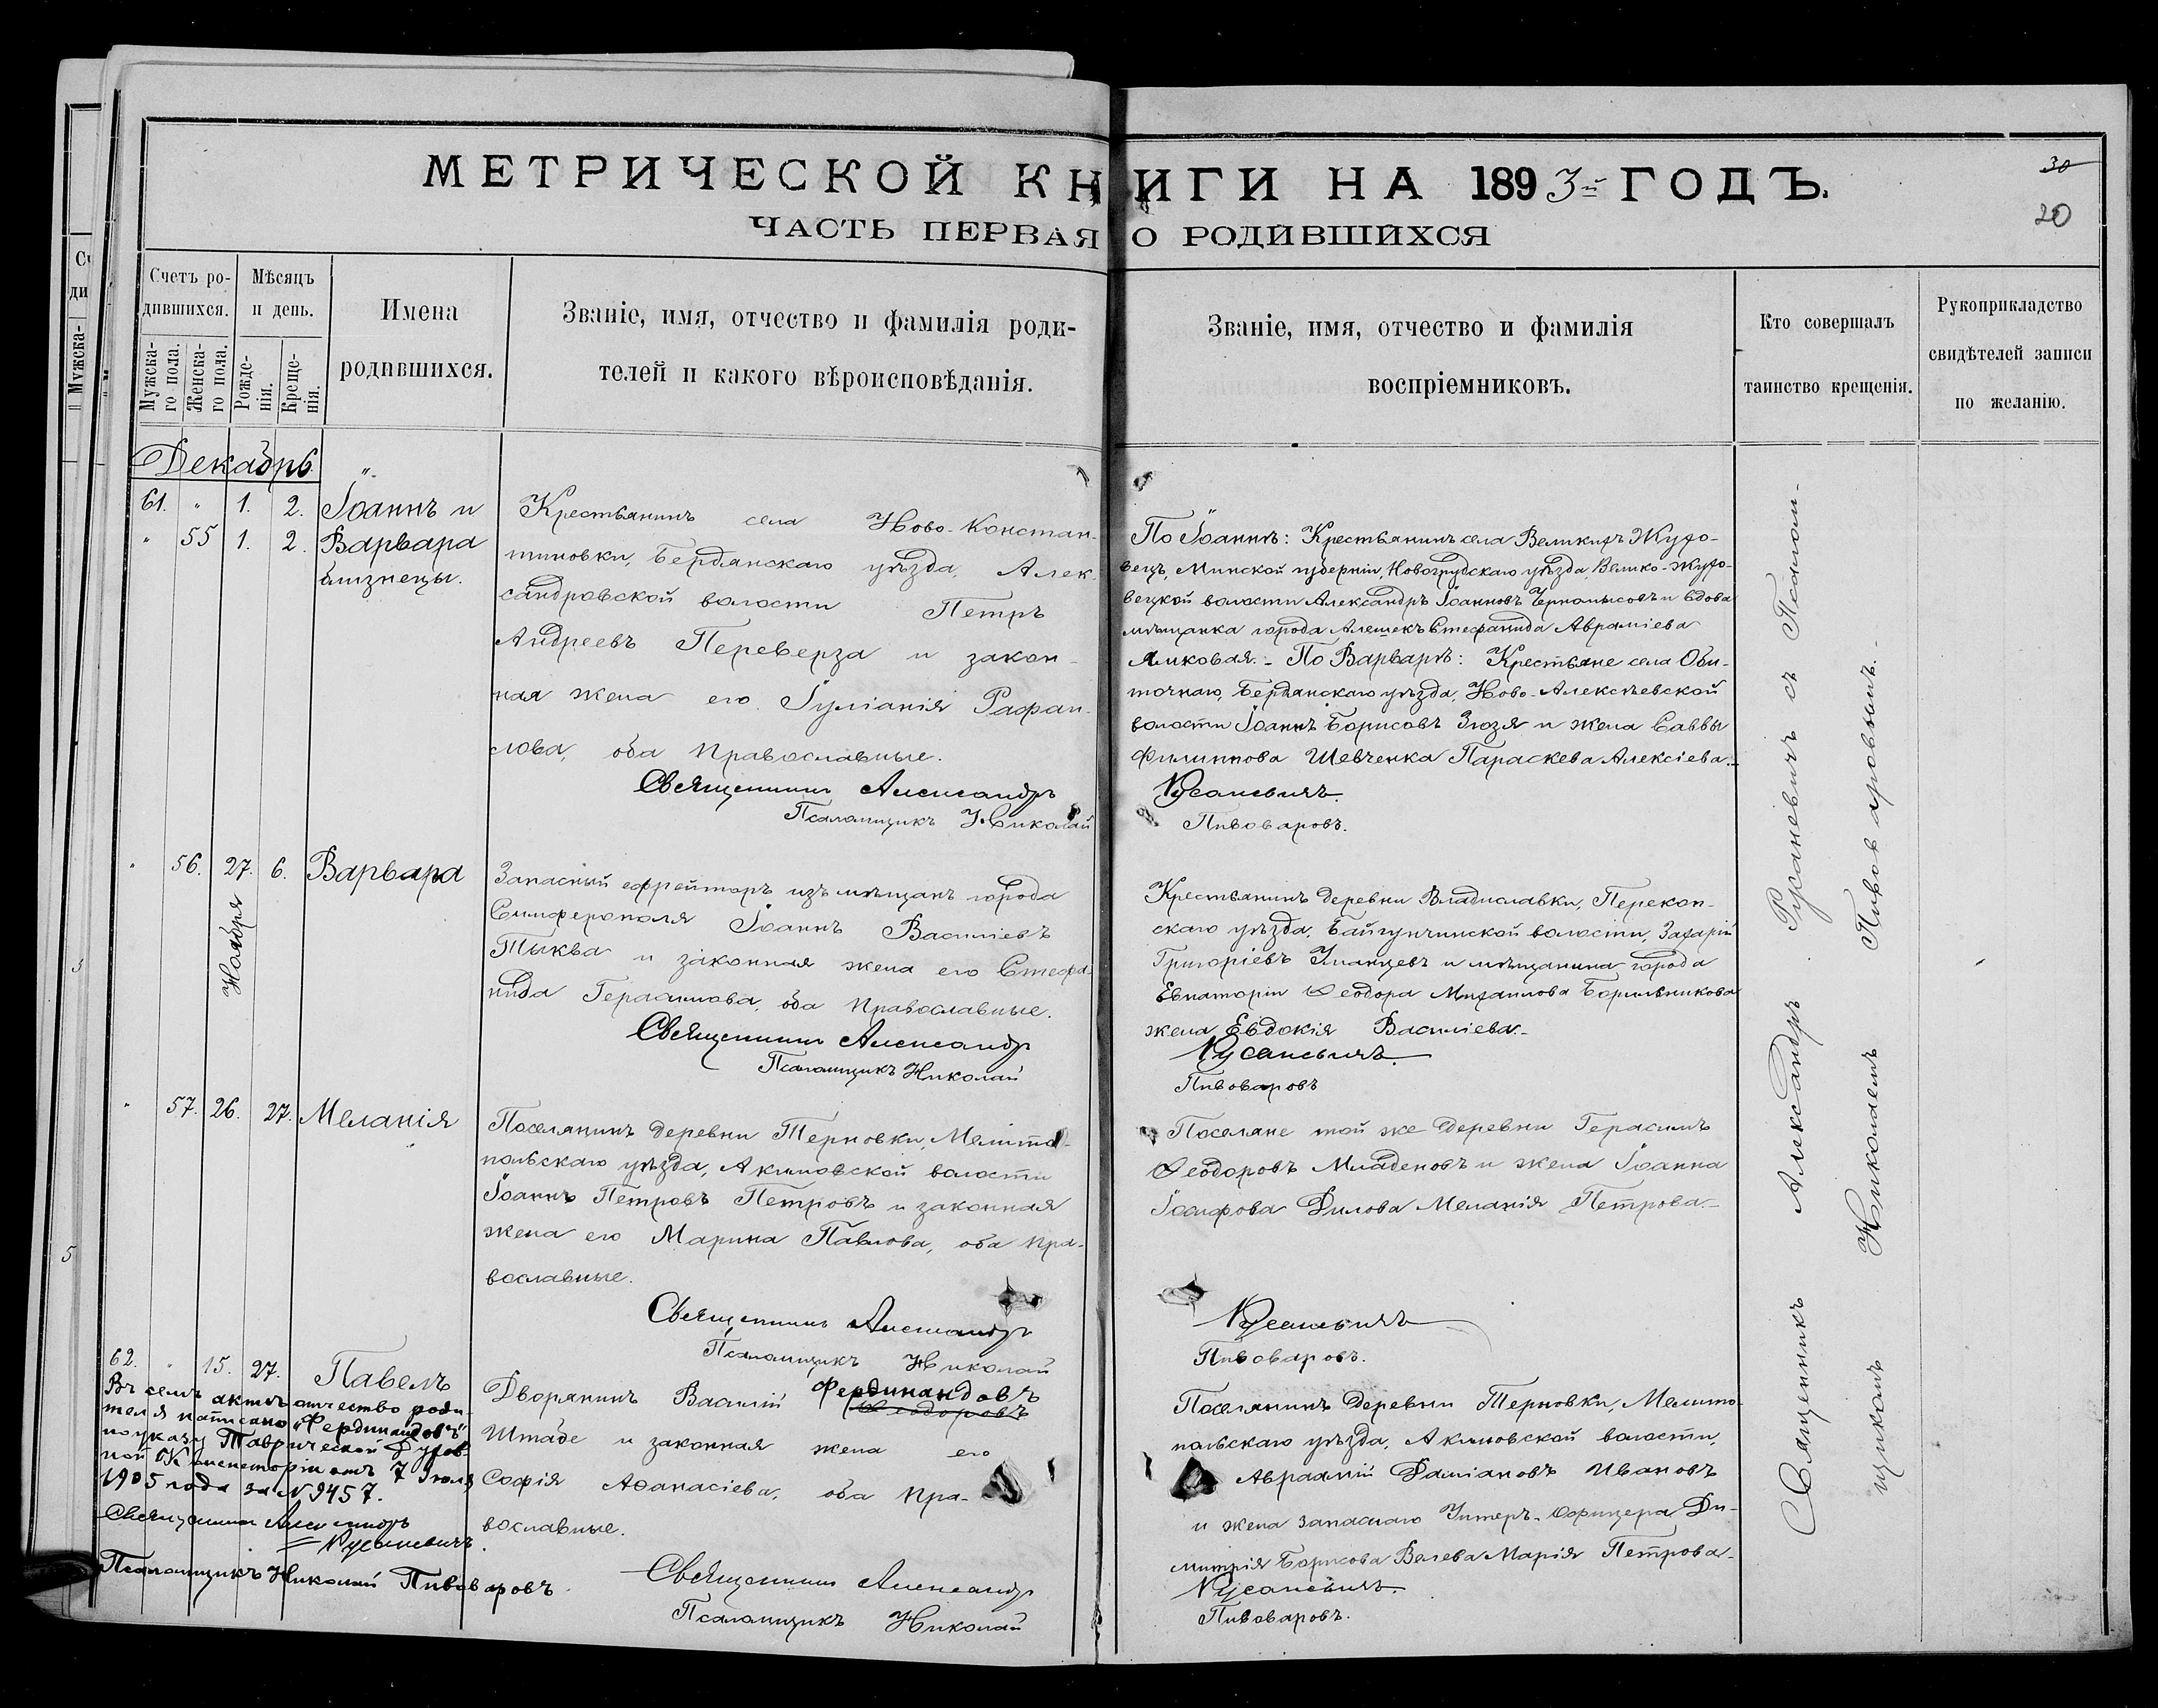 МЕТРИЧЕСКОЙ КНИГИ НА 1893-й ГОДЪ.
30
20
ЧАСТЬ ПЕРВАЯ О РОДИВШИХСЯ
Счетъ родившихся.
Мужскаго пола.
Женскаго пола.
Мѣсяцъ и день.
Рожденія.
Крещенія.
Имена
родившихся.
Званіе, имя, отчество и фамилія роди-
телей и какого вѣроисповѣданія.
Званіе, имя, отчество и фамилія
воспріемниковъ.
Кто совершалъ
таинство крещенія.
Рукоприкладство
свидѣтелей записи
по желанію.
Декабрь
61. " 1. 2. Іоаннъ и
" 55 1. 2. Варвара
близнецы.
Крестьянинъ села Ново-Констан-
тиновки, Бердянскаго уѣзда, Алек-
сандровской волости Петръ
Андреевъ Переверза и закон-
ная жена его Іуліанія Рафаи-
лова, оба православные.
Священникъ Александръ
Псаломщикъ Николай
По Іоаннѣ: Крестьянинъ села Великихъ Жухо-
вецъ, Минской губерніи, Новогрудскаго уѣзда, Велико-Жухо-
вецкой волости Александръ Іоанновъ Черномысовъ и вдова
мѣщанка города Алешекъ Стефанида Авраміева
Ликовая. - По Варварѣ: Крестьяне села Оби-
точнаго, Бердянскаго уѣзда, Ново-Алексѣевской
волости Іоаннъ Борисовъ Зюзя и жена Саввы
Филиппова Шевченка Параскева Алексіева. -
Русаневичъ.
Пивоваровъ.
" 56. 27. 6. Варвара
Ноября
Запасный ефрейторъ изъ мѣщанъ города
Симферополя Іоаннъ Василіевъ
Тыква и законная жена его Стефа-
нида Герасимова, оба православные.
Священникъ Александръ
Псаломщикъ Николай
Крестьянинъ деревни Владиславки, Перекоп-
скаго уѣзда, Байгунчинской волости, Захарій
Григоріевъ Уманцевъ и мѣщанина города
Евпаторіи Ѳеодора Михаилова Борильникова
жена Евдокія Василіева. -
Русаневичъ.
Пивоваровъ
" 57. 26. 27. Меланія
Поселянинъ деревни Терновки, Мелито-
польскаго уѣзда, Акимовской волости
Іоаннъ Петровъ Петровъ и законная
жена его Марина Павлова, оба пра-
вославные.
Священникъ Александръ
Псаломщикъ Николай
Поселяне той же деревни Герасимъ
Ѳеодоровъ Младеновъ и жена Іоанна
Іосифова Дилова Меланія Петрова. -
Русаневичъ
Пивоваровъ.
62. " 15. 27. Павелъ
Въ семъ актѣ отчество роди-
теля написано "Фердинандовъ"
по указу Таврической Духов-
ной Консисторіи отъ 7 Іюля
1905 года за № 9457.
Священникъ Александръ
Русаневичъ.
Псаломщикъ Николай Пивоваровъ.
Дворянинъ Василій Фердинандовъ
Ѳеодоровъ
Штаде и законная жена его
Софія Аѳанасіева, оба пра-
вославные.
Священникъ Александръ
Псаломщикъ Николай
Поселянинъ деревни Терновки, Мелито-
польскаго уѣзда, Акимовской волости,
Авраамій Даміановъ Ивановъ
и жена запаснаго Унтеръ-Офицера Ди-
митрія Борисова Велева Марія Петрова. -
Русаневичъ.
Пивоваровъ.
Священникъ Александръ Русаневичъ съ Псалом-
щикомъ Николаемъ Пивоваровымъ. -